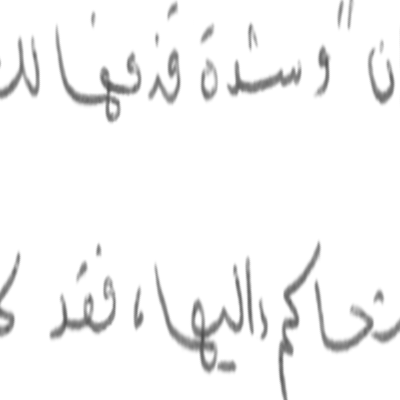 ان" وشدة قذفها لل
تحاكم إليها، فقد ك